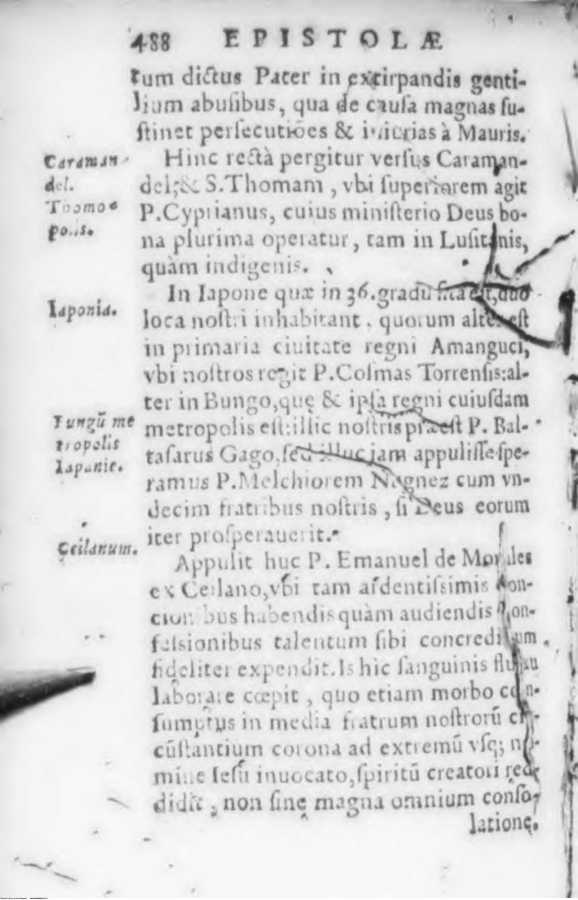 488 EPISTOLÆ
tum dictus Pater in extirpandis genti-
lium abuſibus, qua de cauſa magnas ſu-
ſtinet perſecutiões & iniurias à Mauris.
Caraman-
del.
Thomo-
polis.
Hinc rectà pergitur verſus Caraman-
del; & S. Thomam, vbi ſuperiorem agit
P. Cyprianus, cuius miniſterio Deus bo-
na plurima operatur, tam in Luſitanis,
quàm indigenis.
Iaponia.
In Iapone quæ in 36. gradu ſita eſt, duo
loca noſtri inhabitant, quorum alter eſt
in primaria ciuitate regni Amanguci,
vbi noſtros regit P. Coſmas Torrenſis: al-
ter in Bungo, quę & ipſa regni cuiuſdam
Fungū me
tropolis
Iapanie.
metropolis eſt: illic noſtris præeſt P. Bal-
taſarus Gago, ſed illuc jam appuliſſe ſpe-
ramus P. Melchiorem Nognez cum vn-
decim fratribus noſtris, ſi Deus eorum
iter proſperauerit.
Ceilanum.
Appulit huc P. Emanuel de Morales
ex Ceilano, vbi tam ardentiſſimis con-
cionibus habendis quàm audiendis con-
feſsionibus talentum ſibi concreditum
fideliter expendit. Is hic ſanguinis fluxu
laborare cœpit, quo etiam morbo con-
ſumptus in media fratrum noſtrorū cir-
cūſtantium corona ad extremū vſq; no-
mine Ieſu inuocato, ſpiritū creatori red-
didit, non ſine magna omnium conſo-
latione.